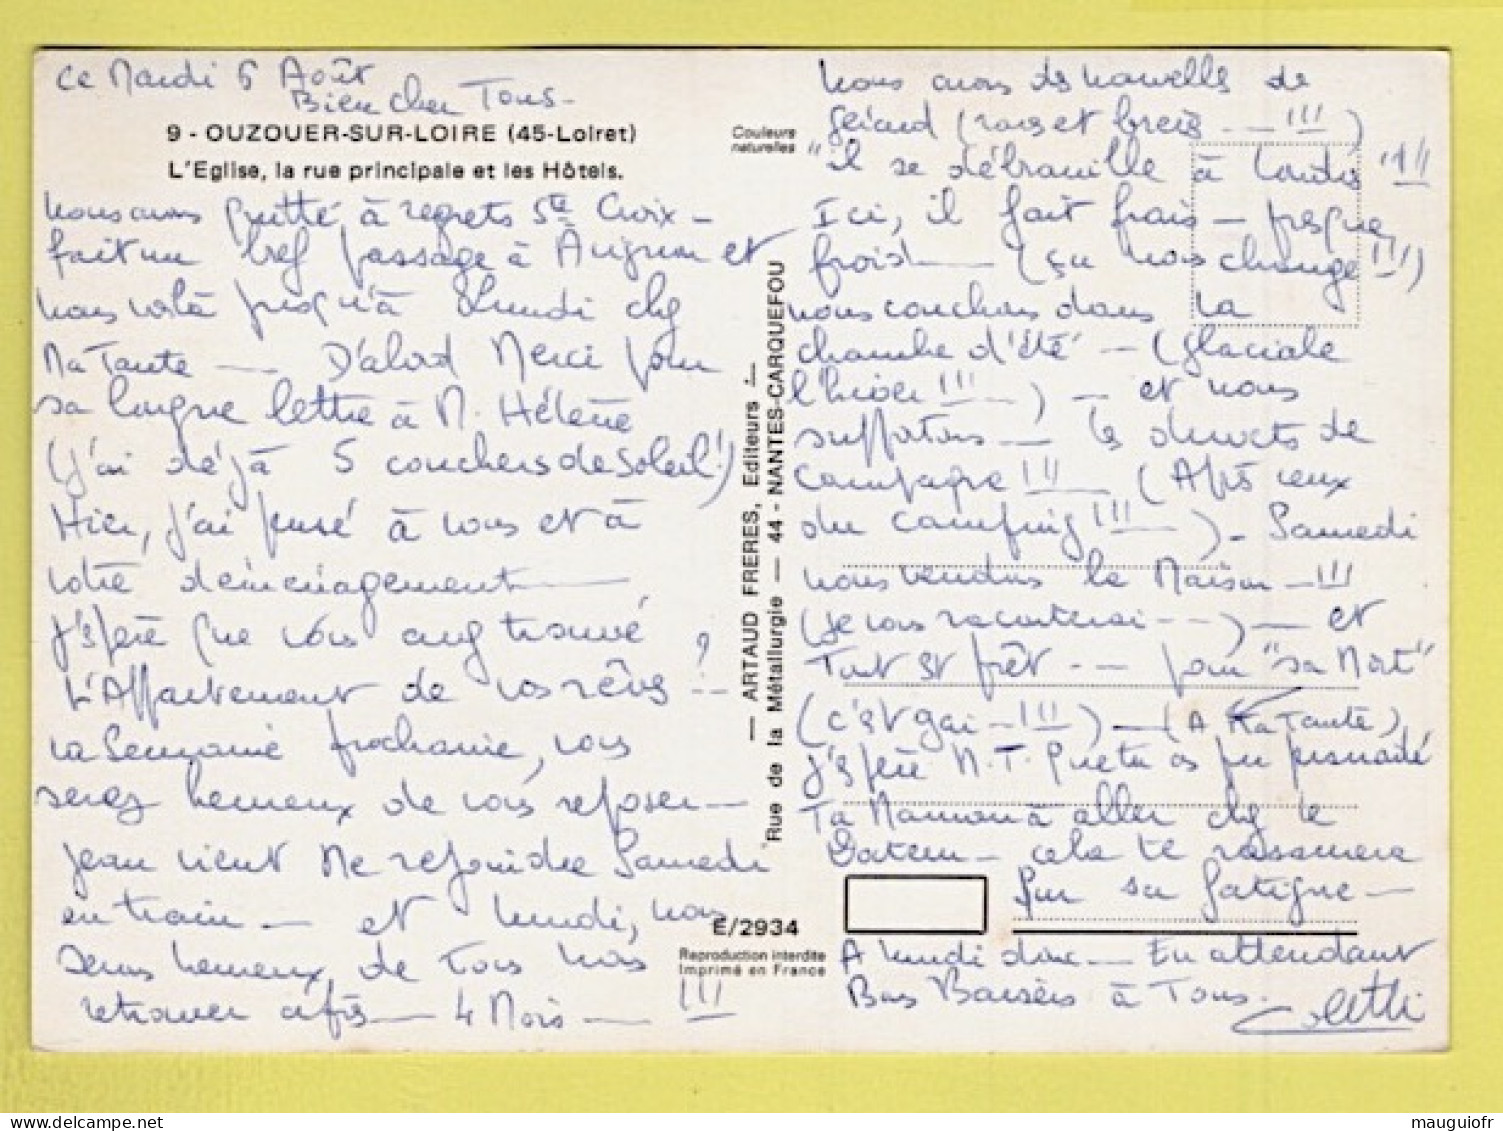 Ce Mardi 5 Août
Bien cher Tous -
9 - OUZOUER-SUR-LOIRE (45-Loiret)
L'Eglise, la rue principale et les Hôtels.
Nous avons quitté à regrets Ste Croix -
fait un bref passage à Avignon et
nous voilà jusqu'à lundi chez
Ma Tante — D'abord Merci pour
sa longue lettre à M. Hélène
(j'ai déjà 5 couchers de soleil !)
Hier, j'ai pensé à vous et à
votre déménagement —
J'espère que vous avez trouvé
L'Appartement de vos rêves -- ?
La Semaine prochaine, vous
serez heureux de vous reposer —
Jean vient me rejoindre Samedi
en train — et lundi, nous
serons heureux de Tous nous
retrouver après — 4 Mois — !!!
Couleurs
naturelles
— ARTAUD FRERES, Editeurs —
Rue de la Métallurgie — 44 - NANTES-CARQUEFOU
E/2934
Reproduction interdite
Imprimé en France
Nous avons des nouvelles de
Gérard (rares et brèves --- !!!)
"il se débrouille à Londres" !!!
Ici, il fait frais — presque
froid — (ça nous change !!!)
nous couchons dans la
chambre d'été — (glaciale
l'hiver !!! —) — et nous
supportons — les duvets de
campagne !!! — (Après ceux
du camping !!! —) - Samedi
nous vendons la Maison — !!!
(je vous raconterai ---) — et
Tout est prêt --- pour "sa Mort"
(c'est gai — !!!) — (A Ma Tante)
J'espère M.T. que tu as pu persuadé
Ta Maman à aller chez le
Docteur — cela te rassurera
sur sa fatigue —
A lundi donc — En attendant
Bons Baisers à Tous.
Colette
mauguiofr